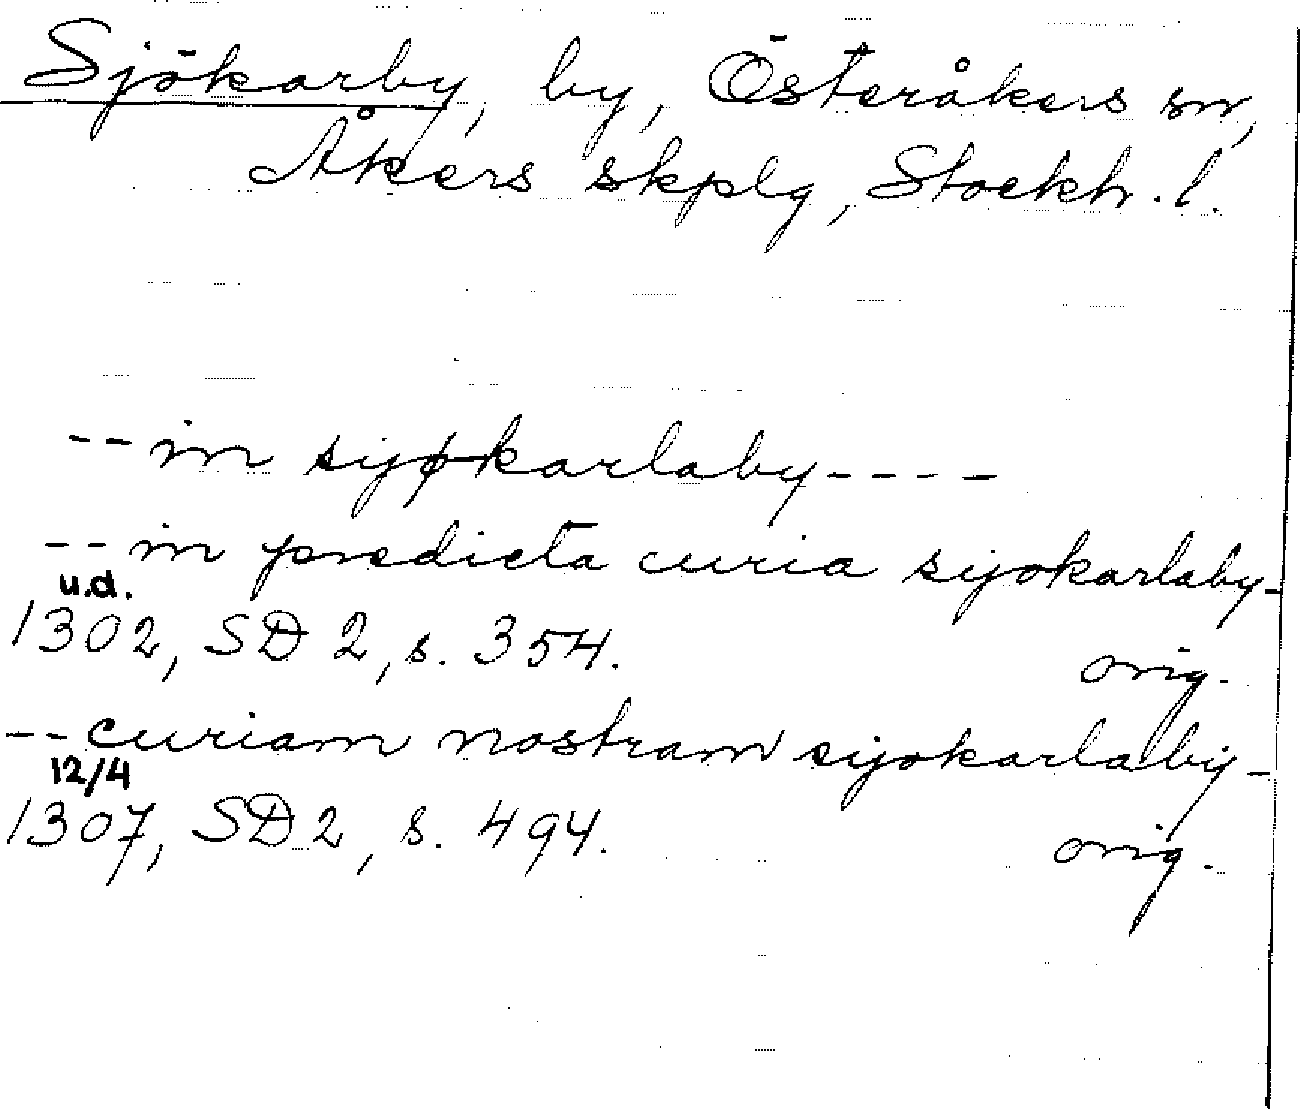 Sjökarby, by, Österåkers sn,
Åkers skplg, Stockh. l.
-- in syøkarlaby ----
-- in predicta curia sijokarlaby -
u.d.
1302, SD 2, s. 354. orig.
-- curiam nostram sijokarlabij -
12/4
1307, SD 2, s. 494. orig.